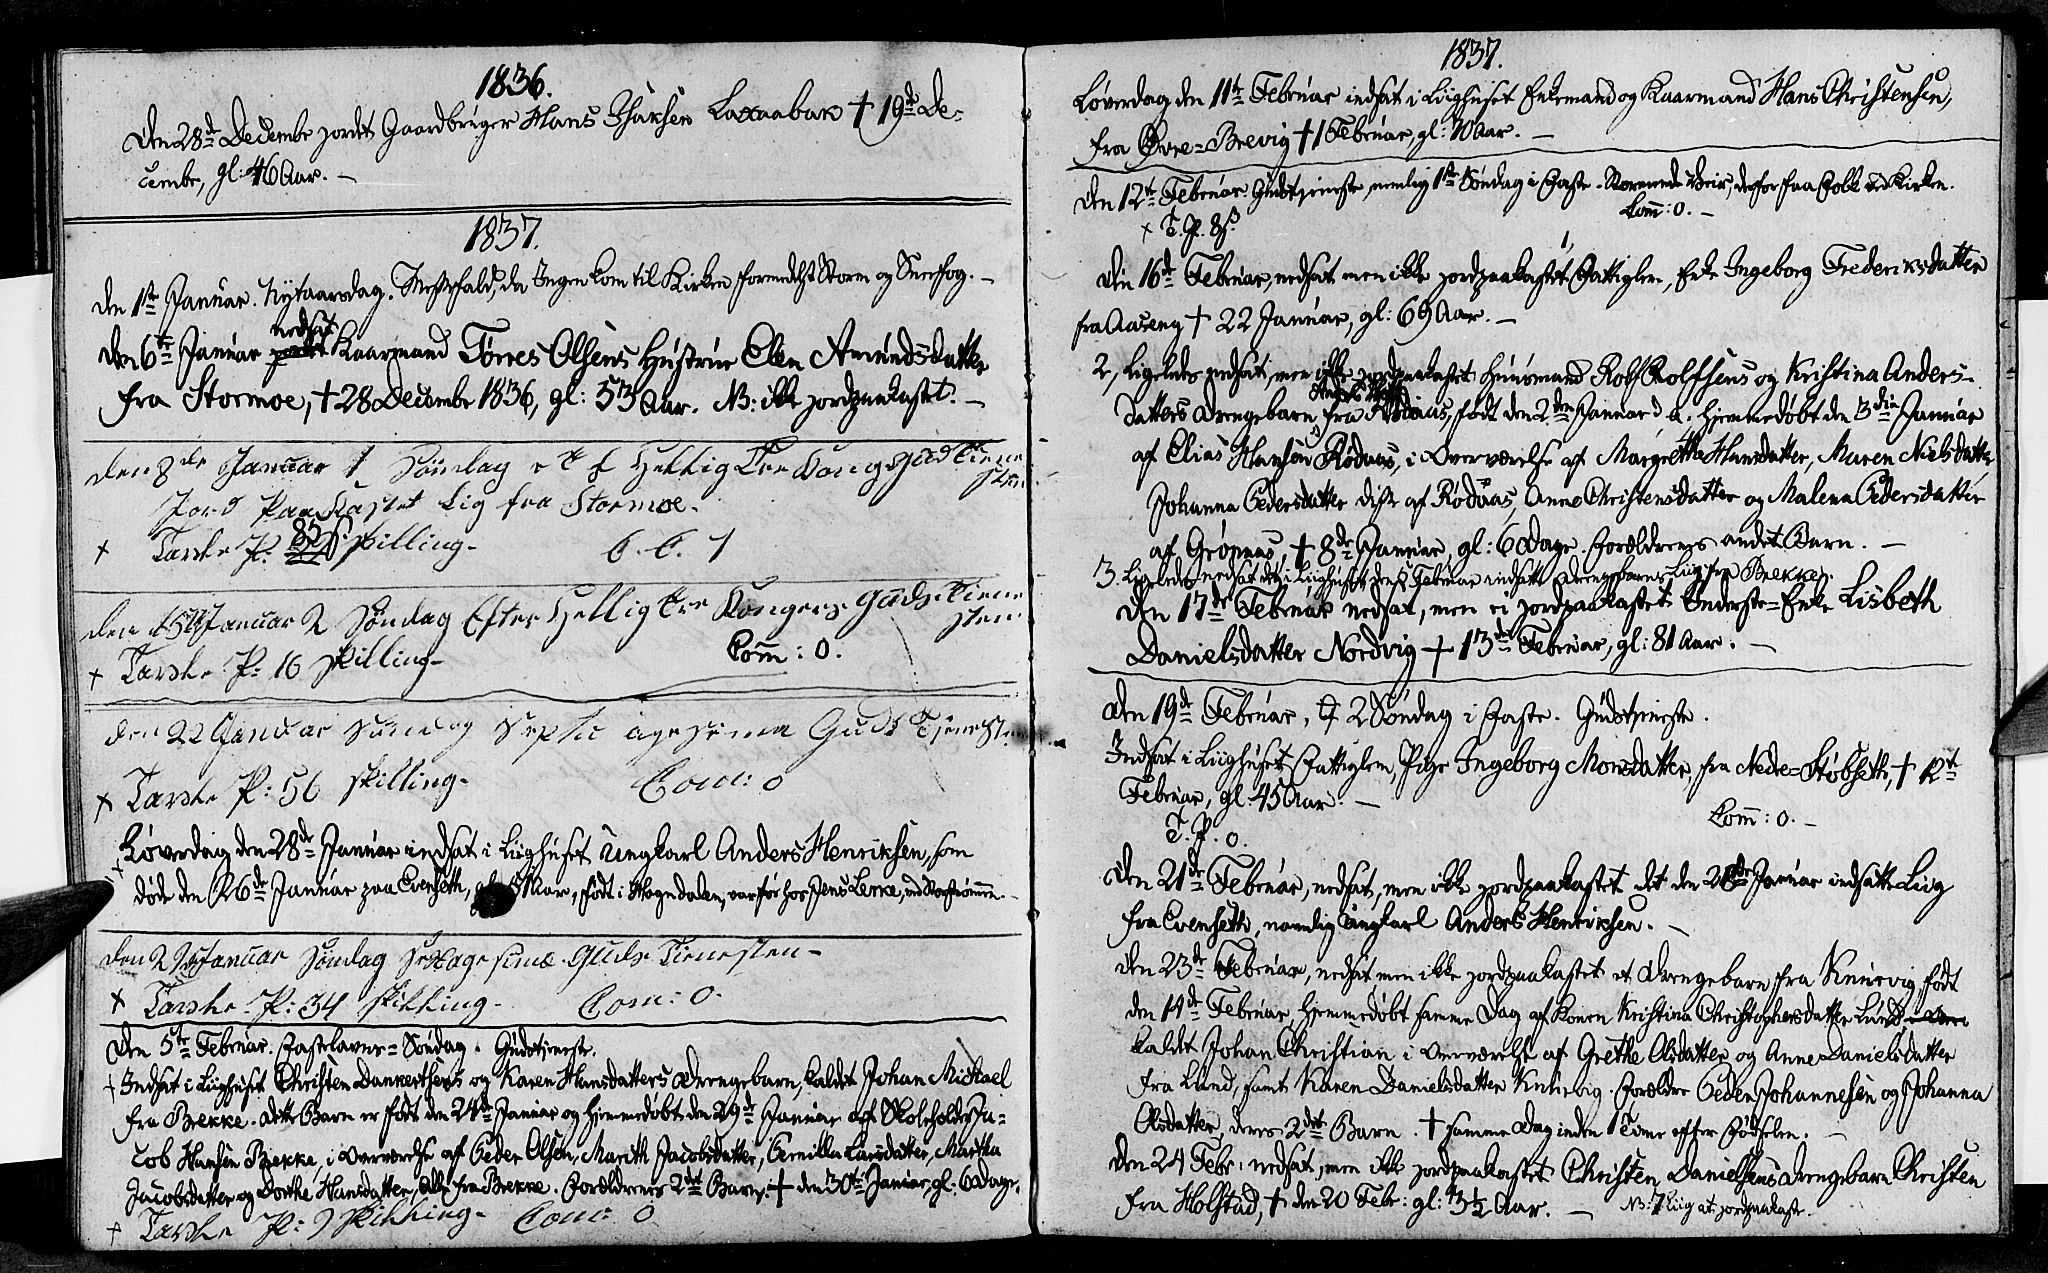 1836.
Den 28de Decembr jordet Gaardbruger Hans Isaksen Laxaabak † 19de De-
cembr, gl: 46 Aar. —
1837.
Den 1ste Januar. Nytaarsdag. Messefald, da Ingen kom til Kirken formedelst Storm og Sneefog. —
nedsat
Den 6te Januar jordet Kaarmand Tørres Olsens Hustrue Elen Amundsdatter
fra Stormoe, † 28 Decembr 1836, gl: 53 Aar. NB: ikke jordpaakastet. —
den 8de Januar 1 Søndag e t f Hellig Tre Kong Guds Tiene
sten
Jord Paa Kastet Lig fra Stormoe.
8 ß.
x Tavske P: skilling - C. C. 1
den 15de Januar 2 Søndag Efter Hellig tre Konger Guds Tiene
sten
x Tavske P: 16 skilling - Com̄: 0.
den 22 Januar Sundag Septu agesima Guds Tjenesten
x Tavske P: 56 skilling - Com: 0
Løverdag den 28de Januar indsat i Liighuset Ungkarl Anders Henriksen, som
døde den 26de Januar paa Evenseth, gl Aar, født i Hogndalen, var før hos Jens Lerke, ved Rosstrømmen. —
den 29de Januar Søndag Sexagesima Guds Tienesten -
x Tavske P: 34 skilling - Com: 0.
Den 5te Februar. Fastelavns-Søndag. Gudstjeneste.
† Indsat i Liighuset Christen Dankertsens og Karen Hansdatters Drengebarn, kaldet Johan Mickael
fra Brekke. Dette Barn er født den 24de Januar og hjemmedøbt den 29de Januar af Skoleholder Ja-
cob Hansen Brekke, i Overværelse af Peder Olsen, Marith Jacobsdatter, Pernilla Larsdatter, Martha
Jacobsdatter og Dorthe Hansdatter, alle fra Brekke. Forældrenes 2det Barn. † den 30te Januar, gl: 6 Dage.
x Tavske P: 9 skilling - Com: 0
1837.
Løverdag den 11te Februar indsat i Liighuset Enkemand og Kaarmand Hans Christensen,
fra Øvre-Brevig † 1 Februar, gl: 70 Aar. —
Den 12te Februar Gudstjeneste, nemlig 1ste Søndag i Faste. Stormende Veir, derfor faa Folk ved Kirken.
x T. P. 8 ß. Com̄: 0. —
Den 16de Februar, nedsat men ikke jordpaakastet 1, Fattiglem, Enke Ingeborg Frederiksdatter
fra Aaseng † 22 Januar, gl: 69 Aar. —
2, Ligeledes nedsat, men ikke jordpaakastet Huusmand Rolf Rolfsens og Kristina Anders-
datters Drengebarn fra Rødaas, født den 2den Januar d. a. hjemmedøbt den 3die Januar
af Elias Hansen Rødaas, i Overværelse af Margretha Hansdatter, Maren Nielsdatter
Johanna Pedersdatter disse af Rødaas, Anne Christensdatter og Malena Pedersdatter
af Grønnas, † 8de Januar, gl: 6 Dage. Forældrenes andet Barn. —
3. Ligeledes nedsat det i Liighuset den 5 Februar indsatte Drengebarns Liig fra Brekke.
Den 17de Februar nedsat, men ei jordpaakastet Inderste-Enke Lisbeth
Danielsdatter Nordvig † 13de Februar, gl: 81 Aar. —
Den 19de Februar, 2 Søndag i Faste. Gudstjeneste.
Indsat i Liighuset Fattiglem, Pige Ingeborg Monsdatter, fra Nedre-Støbseth, † 12te
Februar, gl: 45 Aar. —
T. P. 0 Com̄: 0. —
Den 21de Februar, nedsat, men ikke jordpaakastet det den 28de Januar indsatte Liig
fra Evenseth, nemlig Ungkarl Anders Henriksen. —
Den 23de Februar, nedsat, men ikke jordpaakastet et Drengebarn fra Knurvig, født
den 14de Februar, hjemmedøbt samme Dag af Konen Kristina Christophersdatter Lund
kaldt Johan Christian i Overværelse af Grethe Olsdatter og Anne Danielsdatter
fra Lund, samt Karen Danielsdatter Knurvig. Forældre Peder Johannesen og Johanna
Olsdatter, deres 2det Barn. † samme Dag inden 1 Time efter Fødselen. —
Den 24 Febr: nedsat, men ikke jordpaakastet Christen Danielsens Drengebarn Christen
fra Holstad, † den 20 Febr: gl: 3½ Aar. — NB: 7 Liig at jordpaakaste.